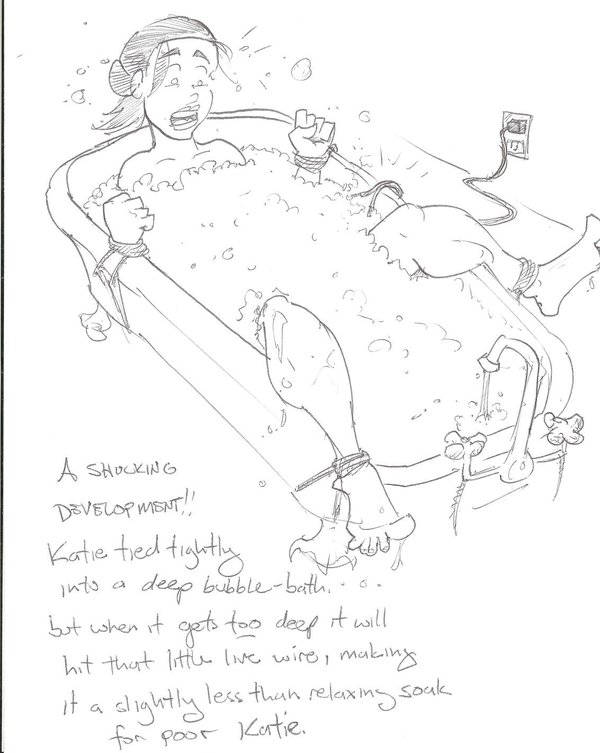 A SHOCKING
DEVELOPMENT!!
Katie tied tightly
into a deep bubble-bath...
but when it gets too deep it will
hit that little live wire, making
it a slightly less than relaxing soak
for poor Katie.